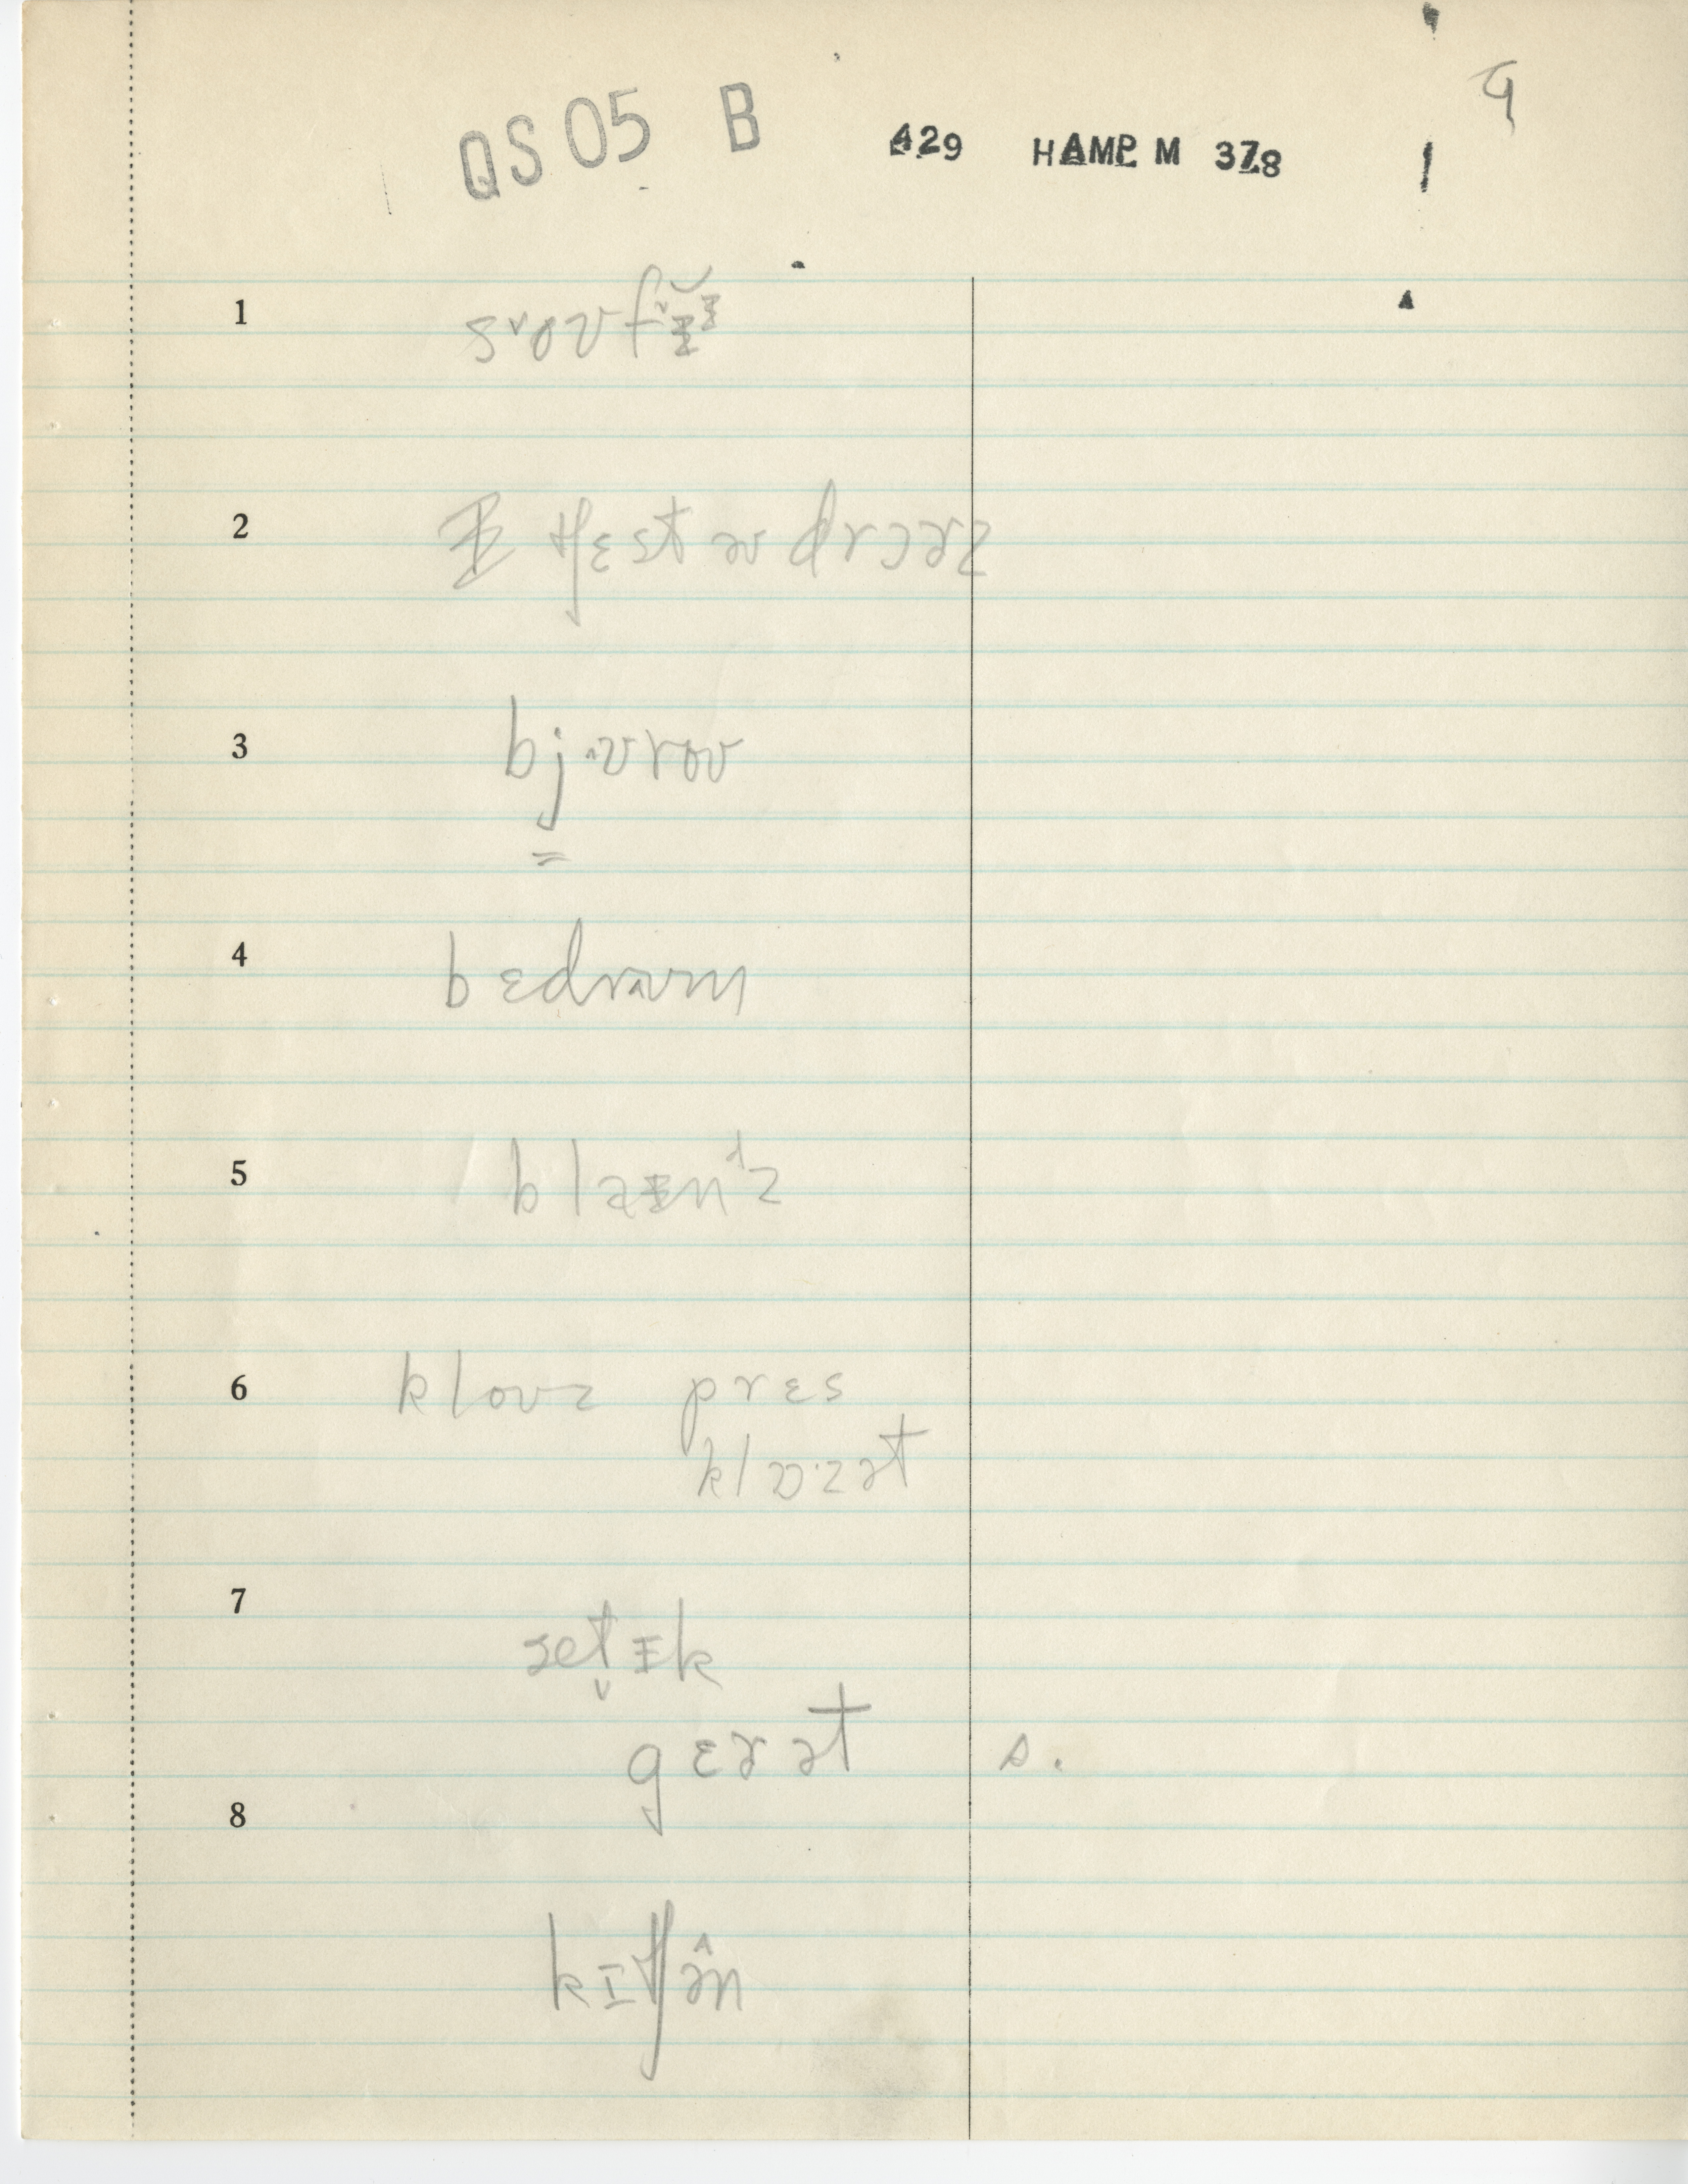 9
QS 05 B 429 HAMP M 378
1 sᵛoʊfᵛɪ̆ᶦ
2 tʃɛst əv drɔɚz
3 bjʊroʊ
4 bɛdrʊm
5 blaɪnᵈz
6 kloʊz prɛs
klɒ·zət
7 ɜet̬ɪk
gɛɚət s.
8
kɪtʃə̂n